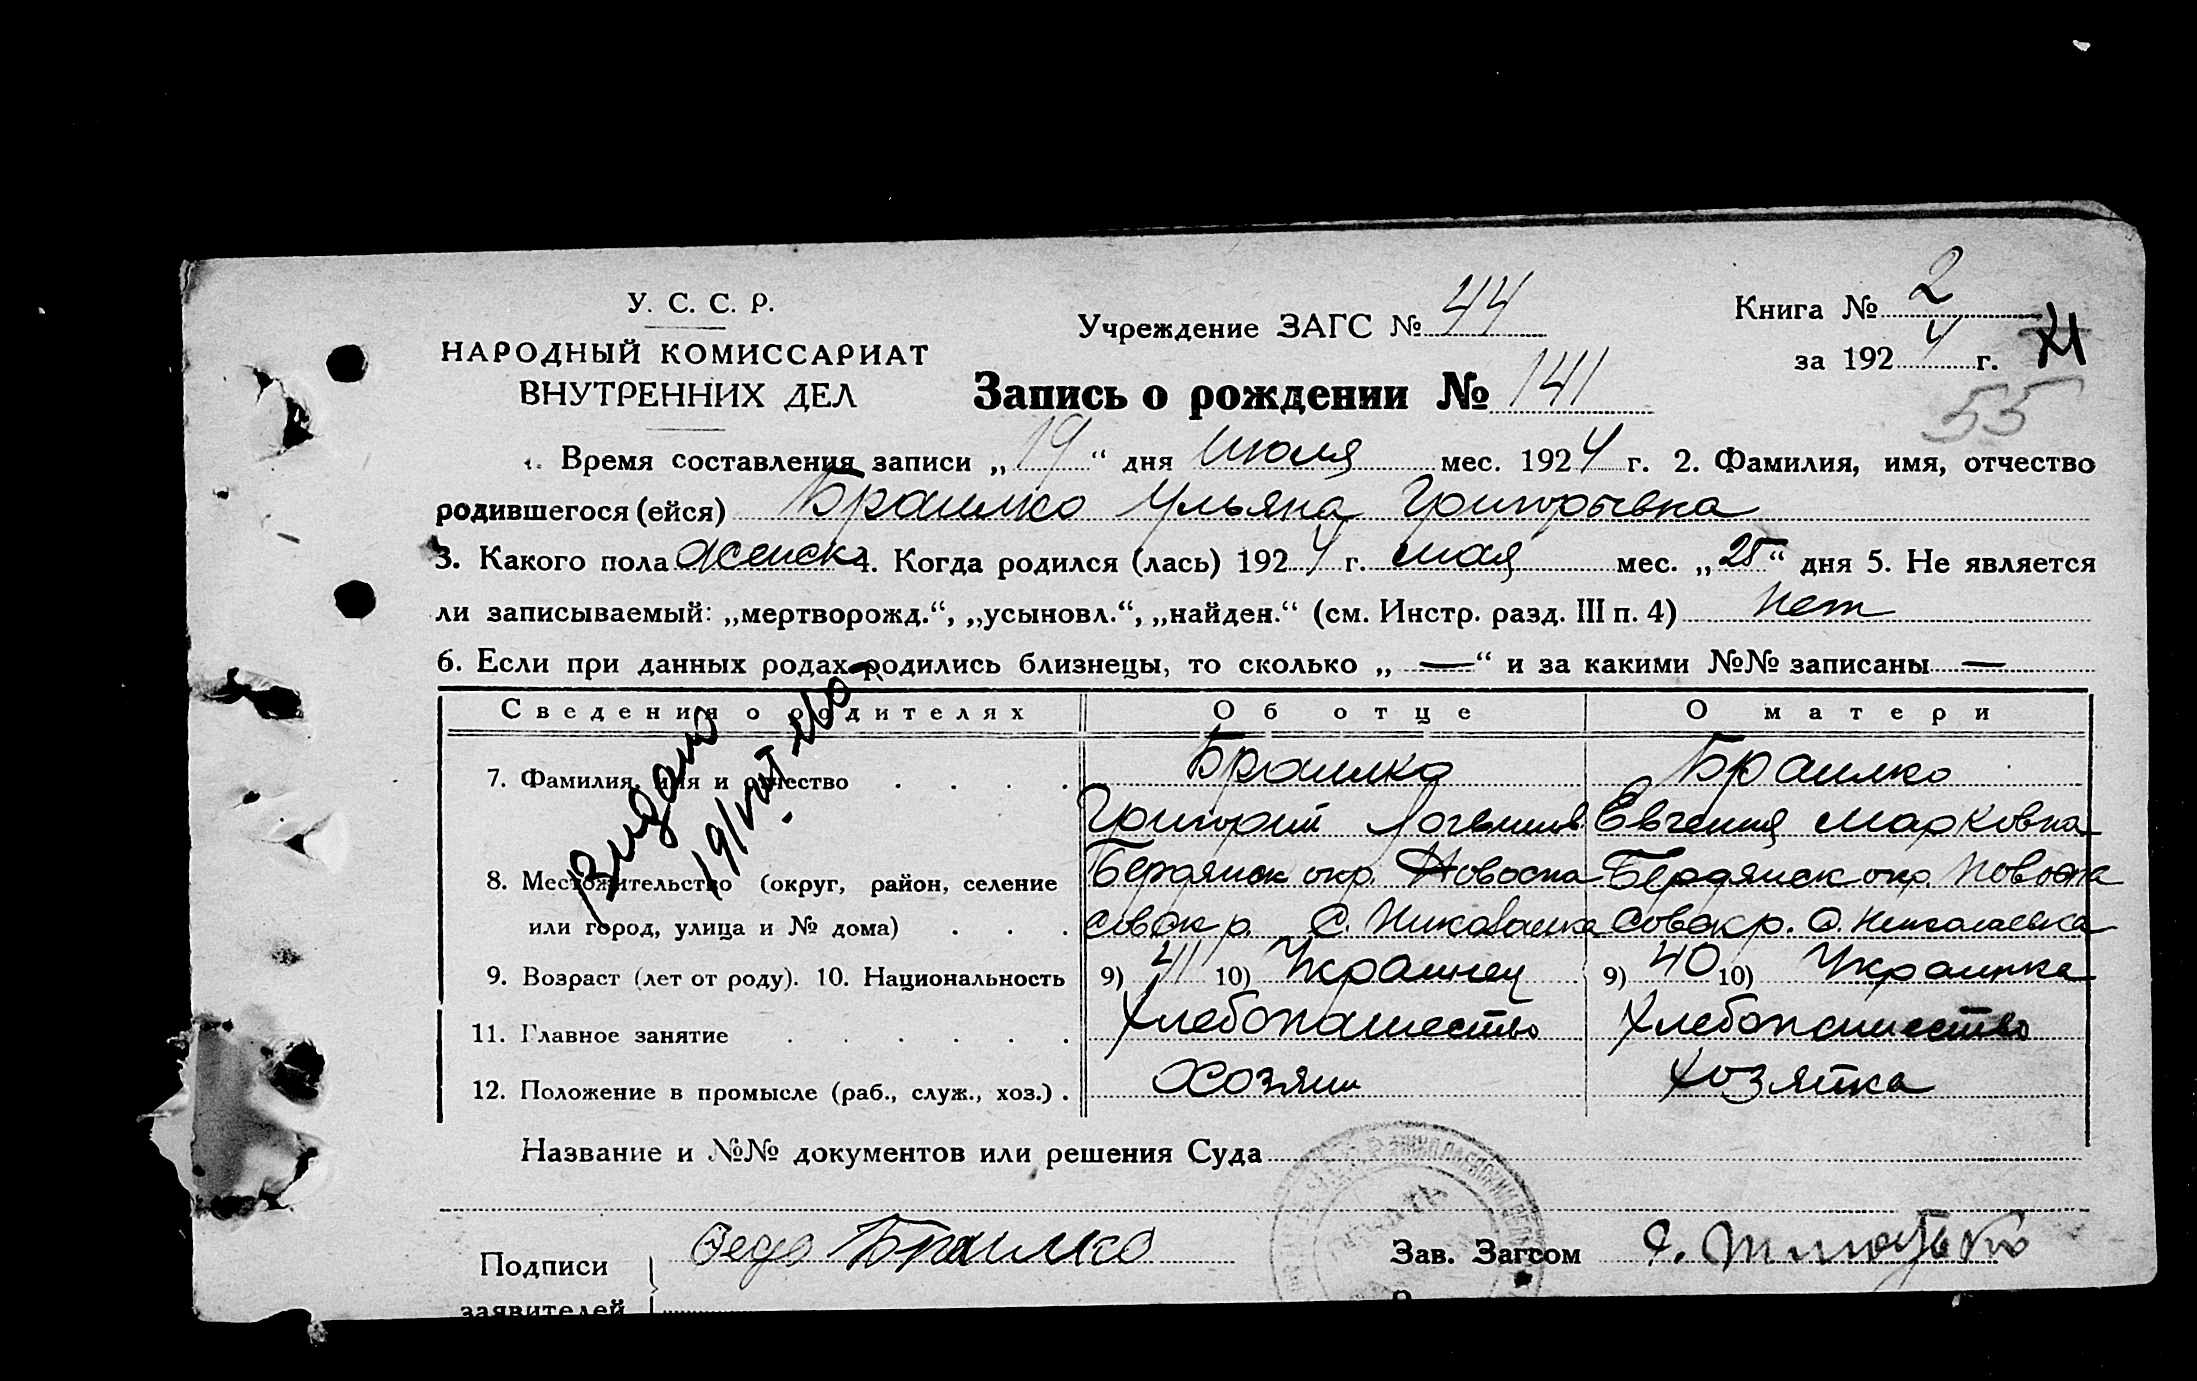 У. С. С. Р.
НАРОДНЫЙ КОМИССАРИАТ
ВНУТРЕННИХ ДЕЛ
Учреждение ЗАГС № 44
Книга № 2
за 1924 г.
55
Запись о рождении № 141
1. Время составления записи „19“ дня Июля мес. 1924 г. 2. Фамилия, имя, отчество
родившегося (ейся) Браилко Ульяна Григорьевна
3. Какого пола женск 4. Когда родился (лась) 1924 г. мая мес. „25“ дня 5. Не является
ли записываемый: „мертворожд.“, „усыновл.“, „найден.“ (см. Инстр. разд. III п. 4) нет
6. Если при данных родах родились близнецы, то сколько „ — “ и за какими №№ записаны —
Сведения о родителях Об отце О матери
7. Фамилия, имя и отчество . . . . Браилко Браилко
Григорий Евгения Марковна
8. Местожительство (округ, район, селение Бердянск окр. Новоспа Бердянск окр. Новоспа
или город, улица и № дома) . . . совск р. С. Николаевка совск р. С. Николаевка
9. Возраст (лет от роду). 10. Национальность 9) 41 10) Украинец 9) 40 10) Украинка
11. Главное занятие . . . . . . Хлебопашество Хлебопашество
12. Положение в промысле (раб., служ., хоз.) . Хозяин Хозяйка
Видано
19/VII
Название и №№ документов или решения Суда
Подписи Браилко Зав. Загсом
заявителей